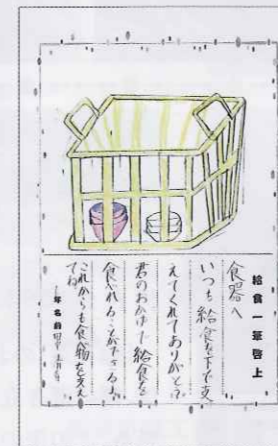 給食一筆啓上
食器へ
いつも給食を下で支
えてくれてありがとう。
君のおかげで給食を
食べれることができるよ。
これからも食物を支え
てね
年 名前